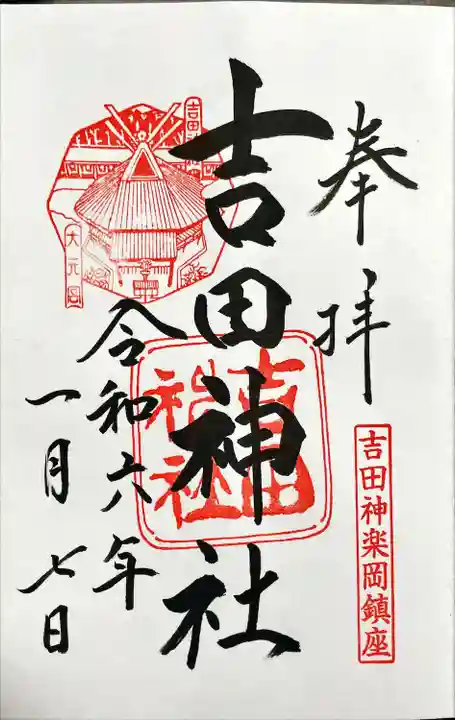 奉拝
吉田神楽岡鎮座
吉田神社
吉田神社
令和六年
一月七日
吉田神社
大元宮